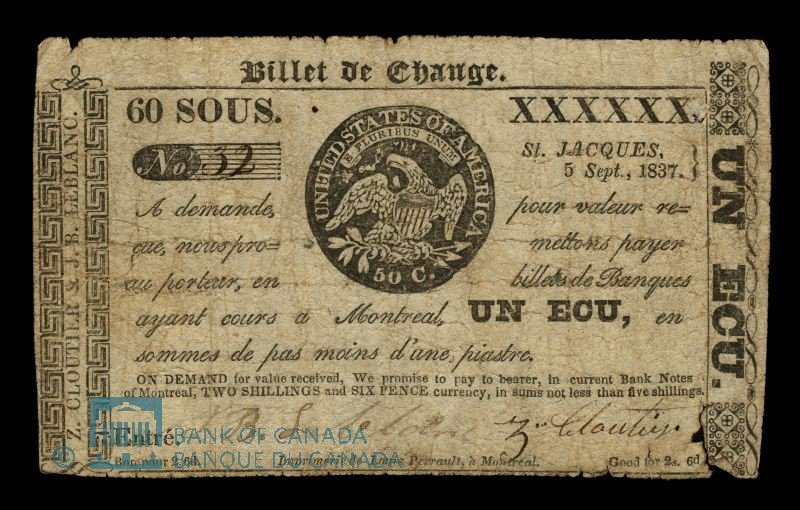 Billet de Change.
60 SOUS.
XXXXXX.
No. 32
UNITED STATES OF AMERICA
E PLURIBUS UNUM
50 C.
St. JACQUES,
5 Sept., 1837.
A demande, pour valeur re=
çue, nous pro= mettons payer
au porteur, en billets de Banques
ayant cours a Montreal, UN ECU, en
sommes de pas moins d'une piastre.
ON DEMAND for value received, We promise to pay to bearer, in current Bank Notes
of Montreal, TWO SHILLINGS and SIX PENCE currency, in sums not less than five shillings.
Entré.
Z. Cloutier
Bon pour 2s 6d. Imprimerie de Louis Perrault, à Montreal. Good for 2s. 6d
Z. CLOUTIER & J. B. LEBLANC.
UN ECU.
© BANK OF CANADA
BANQUE DU CANADA